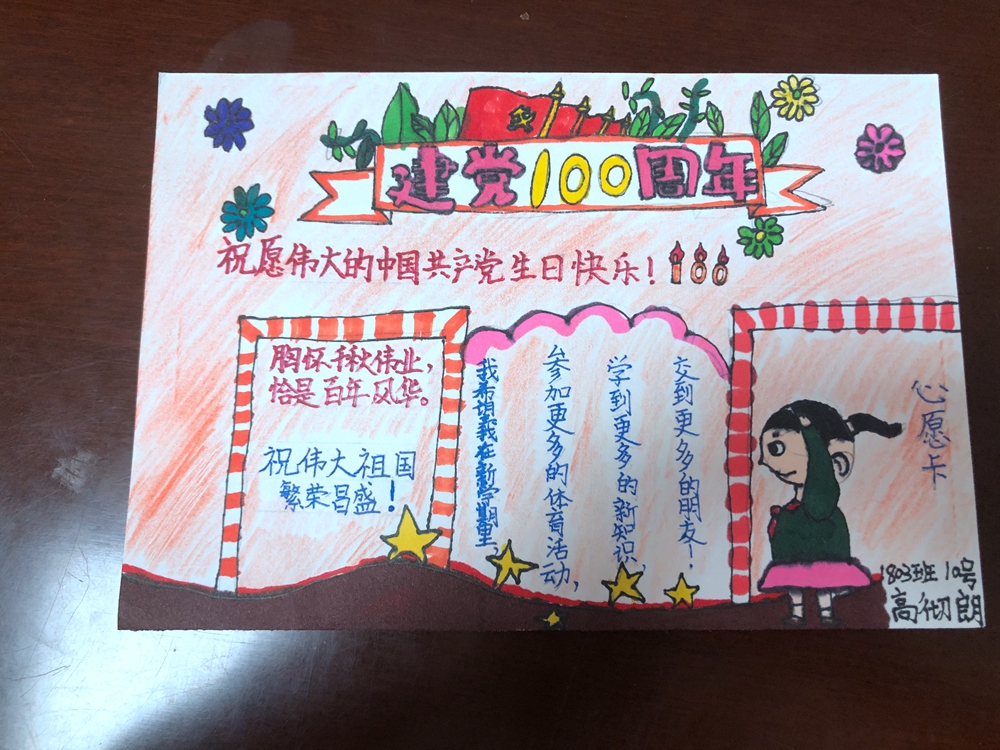 建党100周年
祝愿伟大的中国共产党生日快乐！100
胸怀千秋伟业，
恰是百年风华。
祝伟大祖国
繁荣昌盛！
我希望我在新学期里，
参加更多的体育活动，
学到更多的新知识，
交到更多的朋友！
心愿卡
1803班 10号
高彻朗